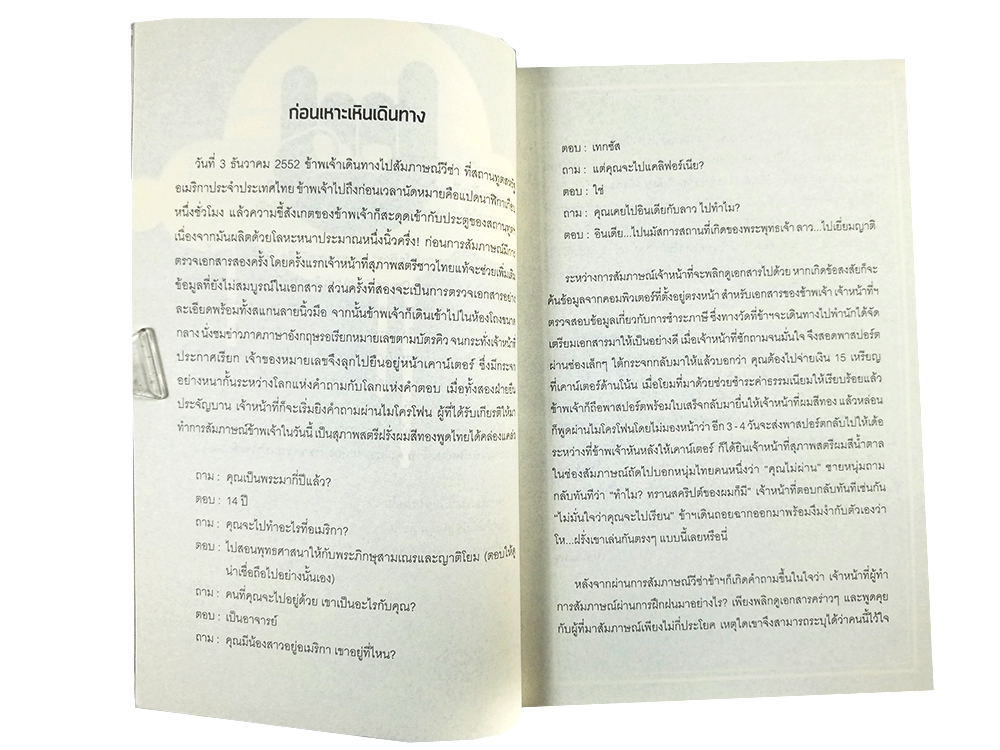 ก่อนเหาะเหินเดินทาง
วันที่ 3 ธันวาคม 2552 ข้าพเจ้าเดินทางไปสัมภาษณ์วีซ่า ที่สถานทูตสหรัฐ
อเมริกาประจำประเทศไทย ข้าพเจ้าไปถึงก่อนเวลานัดหมายคือแปดนาฬิกาเกือบ
หนึ่งชั่วโมง แล้วความขี้สังเกตของข้าพเจ้าก็สะดุดเข้ากับประตูของสถานทูตฯ
เนื่องจากมันผลิตด้วยโลหะหนาประมาณหนึ่งนิ้วครึ่ง! ก่อนการสัมภาษณ์มีการ
ตรวจเอกสารสองครั้ง โดยครั้งแรกเจ้าหน้าที่สุภาพสตรีชาวไทยแท้จะช่วยเพิ่มเติม
ข้อมูลที่ยังไม่สมบูรณ์ในเอกสาร ส่วนครั้งที่สองจะเป็นการตรวจเอกสารอย่าง
ละเอียดพร้อมทั้งสแกนลายนิ้วมือ จากนั้นข้าพเจ้าก็เดินเข้าไปในห้องโถงขนาด
กลาง นั่งชมข่าวภาคภาษาอังกฤษรอเรียกหมายเลขตามบัตรคิว จนกระทั่งเจ้าหน้าที่
ประกาศเรียก เจ้าของหมายเลขจึงลุกไปยืนอยู่หน้าเคาน์เตอร์ ซึ่งมีกระจก
อย่างหนากั้นระหว่างโลกแห่งคำถามกับโลกแห่งคำตอบ เมื่อทั้งสองฝ่ายยืน
ประจัญบาน เจ้าหน้าที่ก็จะเริ่มยิงคำถามผ่านไมโครโฟน ผู้ที่ได้รับเกียรติให้มา
ทำการสัมภาษณ์ข้าพเจ้าในวันนี้ เป็นสุภาพสตรีฝรั่งผมสีทองพูดไทยได้คล่องแคล่ว
ถาม : คุณเป็นพระมากี่ปีแล้ว?
ตอบ : 14 ปี
ถาม : คุณจะไปทำอะไรที่อเมริกา?
ตอบ : ไปสอนพุทธศาสนาให้กับพระภิกษุสามเณรและญาติโยม (ตอบให้ดู
น่าเชื่อถือไปอย่างนั้นเอง)
ถาม : คนที่คุณจะไปอยู่ด้วย เขาเป็นอะไรกับคุณ?
ตอบ : เป็นอาจารย์
ถาม : คุณมีน้องสาวอยู่อเมริกา เขาอยู่ที่ไหน?
ตอบ : เทกซัส
ถาม : แต่คุณจะไปแคลิฟอร์เนีย?
ตอบ : ใช่
ถาม : คุณเคยไปอินเดียกับลาว ไปทำไม?
ตอบ : อินเดีย...ไปนมัสการสถานที่เกิดของพระพุทธเจ้า ลาว...ไปเยี่ยมญาติ
ระหว่างการสัมภาษณ์เจ้าหน้าที่จะพลิกดูเอกสารไปด้วย หากเกิดข้อสงสัยก็จะ
ค้นข้อมูลจากคอมพิวเตอร์ที่ตั้งอยู่ตรงหน้า สำหรับเอกสารของข้าพเจ้า เจ้าหน้าที่ฯ
ตรวจสอบข้อมูลเกี่ยวกับการชำระภาษี ซึ่งทางวัดที่ข้าฯจะเดินทางไปพำนักได้จัด
เตรียมเอกสารมาให้เป็นอย่างดี เมื่อเจ้าหน้าที่ซักถามจนมั่นใจ จึงสอดพาสปอร์ต
ผ่านช่องเล็กๆ ใต้กระจกกลับมาให้แล้วบอกว่า คุณต้องไปจ่ายเงิน 15 เหรียญ
ที่เคาน์เตอร์ด้านโน้น เมื่อโยมที่มาด้วยช่วยชำระค่าธรรมเนียมให้เรียบร้อยแล้ว
ข้าพเจ้าก็ถือพาสปอร์ตพร้อมใบเสร็จกลับมายื่นให้เจ้าหน้าที่ผมสีทอง แล้วหล่อน
ก็พูดผ่านไมโครโฟนโดยไม่มองหน้าว่า อีก 3 - 4 วันจะส่งพาสปอร์ตกลับไปให้เด้อ
ระหว่างที่ข้าพเจ้าหันหลังให้เคาน์เตอร์ ก็ได้ยินเจ้าหน้าที่สุภาพสตรีผมสีน้ำตาล
ในช่องสัมภาษณ์ถัดไปบอกหนุ่มไทยคนหนึ่งว่า “คุณไม่ผ่าน” ชายหนุ่มถาม
กลับทันทีว่า “ทำไม? ทรานสคริปต์ของผมก็มี” เจ้าหน้าที่ตอบกลับทันทีเช่นกัน
“ไม่มั่นใจว่าคุณจะไปเรียน” ข้าฯเดินถอยฉากออกมาพร้อมงึมงำกับตัวเองว่า
โห...ฝรั่งเขาเล่นกันตรงๆ แบบนี้เลยหรือนี่
หลังจากผ่านการสัมภาษณ์วีซ่าข้าฯก็เกิดคำถามขึ้นในใจว่า เจ้าหน้าที่ผู้ทำ
การสัมภาษณ์ผ่านการฝึกฝนมาอย่างไร? เพียงพลิกดูเอกสารคร่าวๆ และพูดคุย
กับผู้ที่มาสัมภาษณ์เพียงไม่กี่ประโยค เหตุใดเขาจึงสามารถระบุได้ว่าคนนี้ไว้ใจ